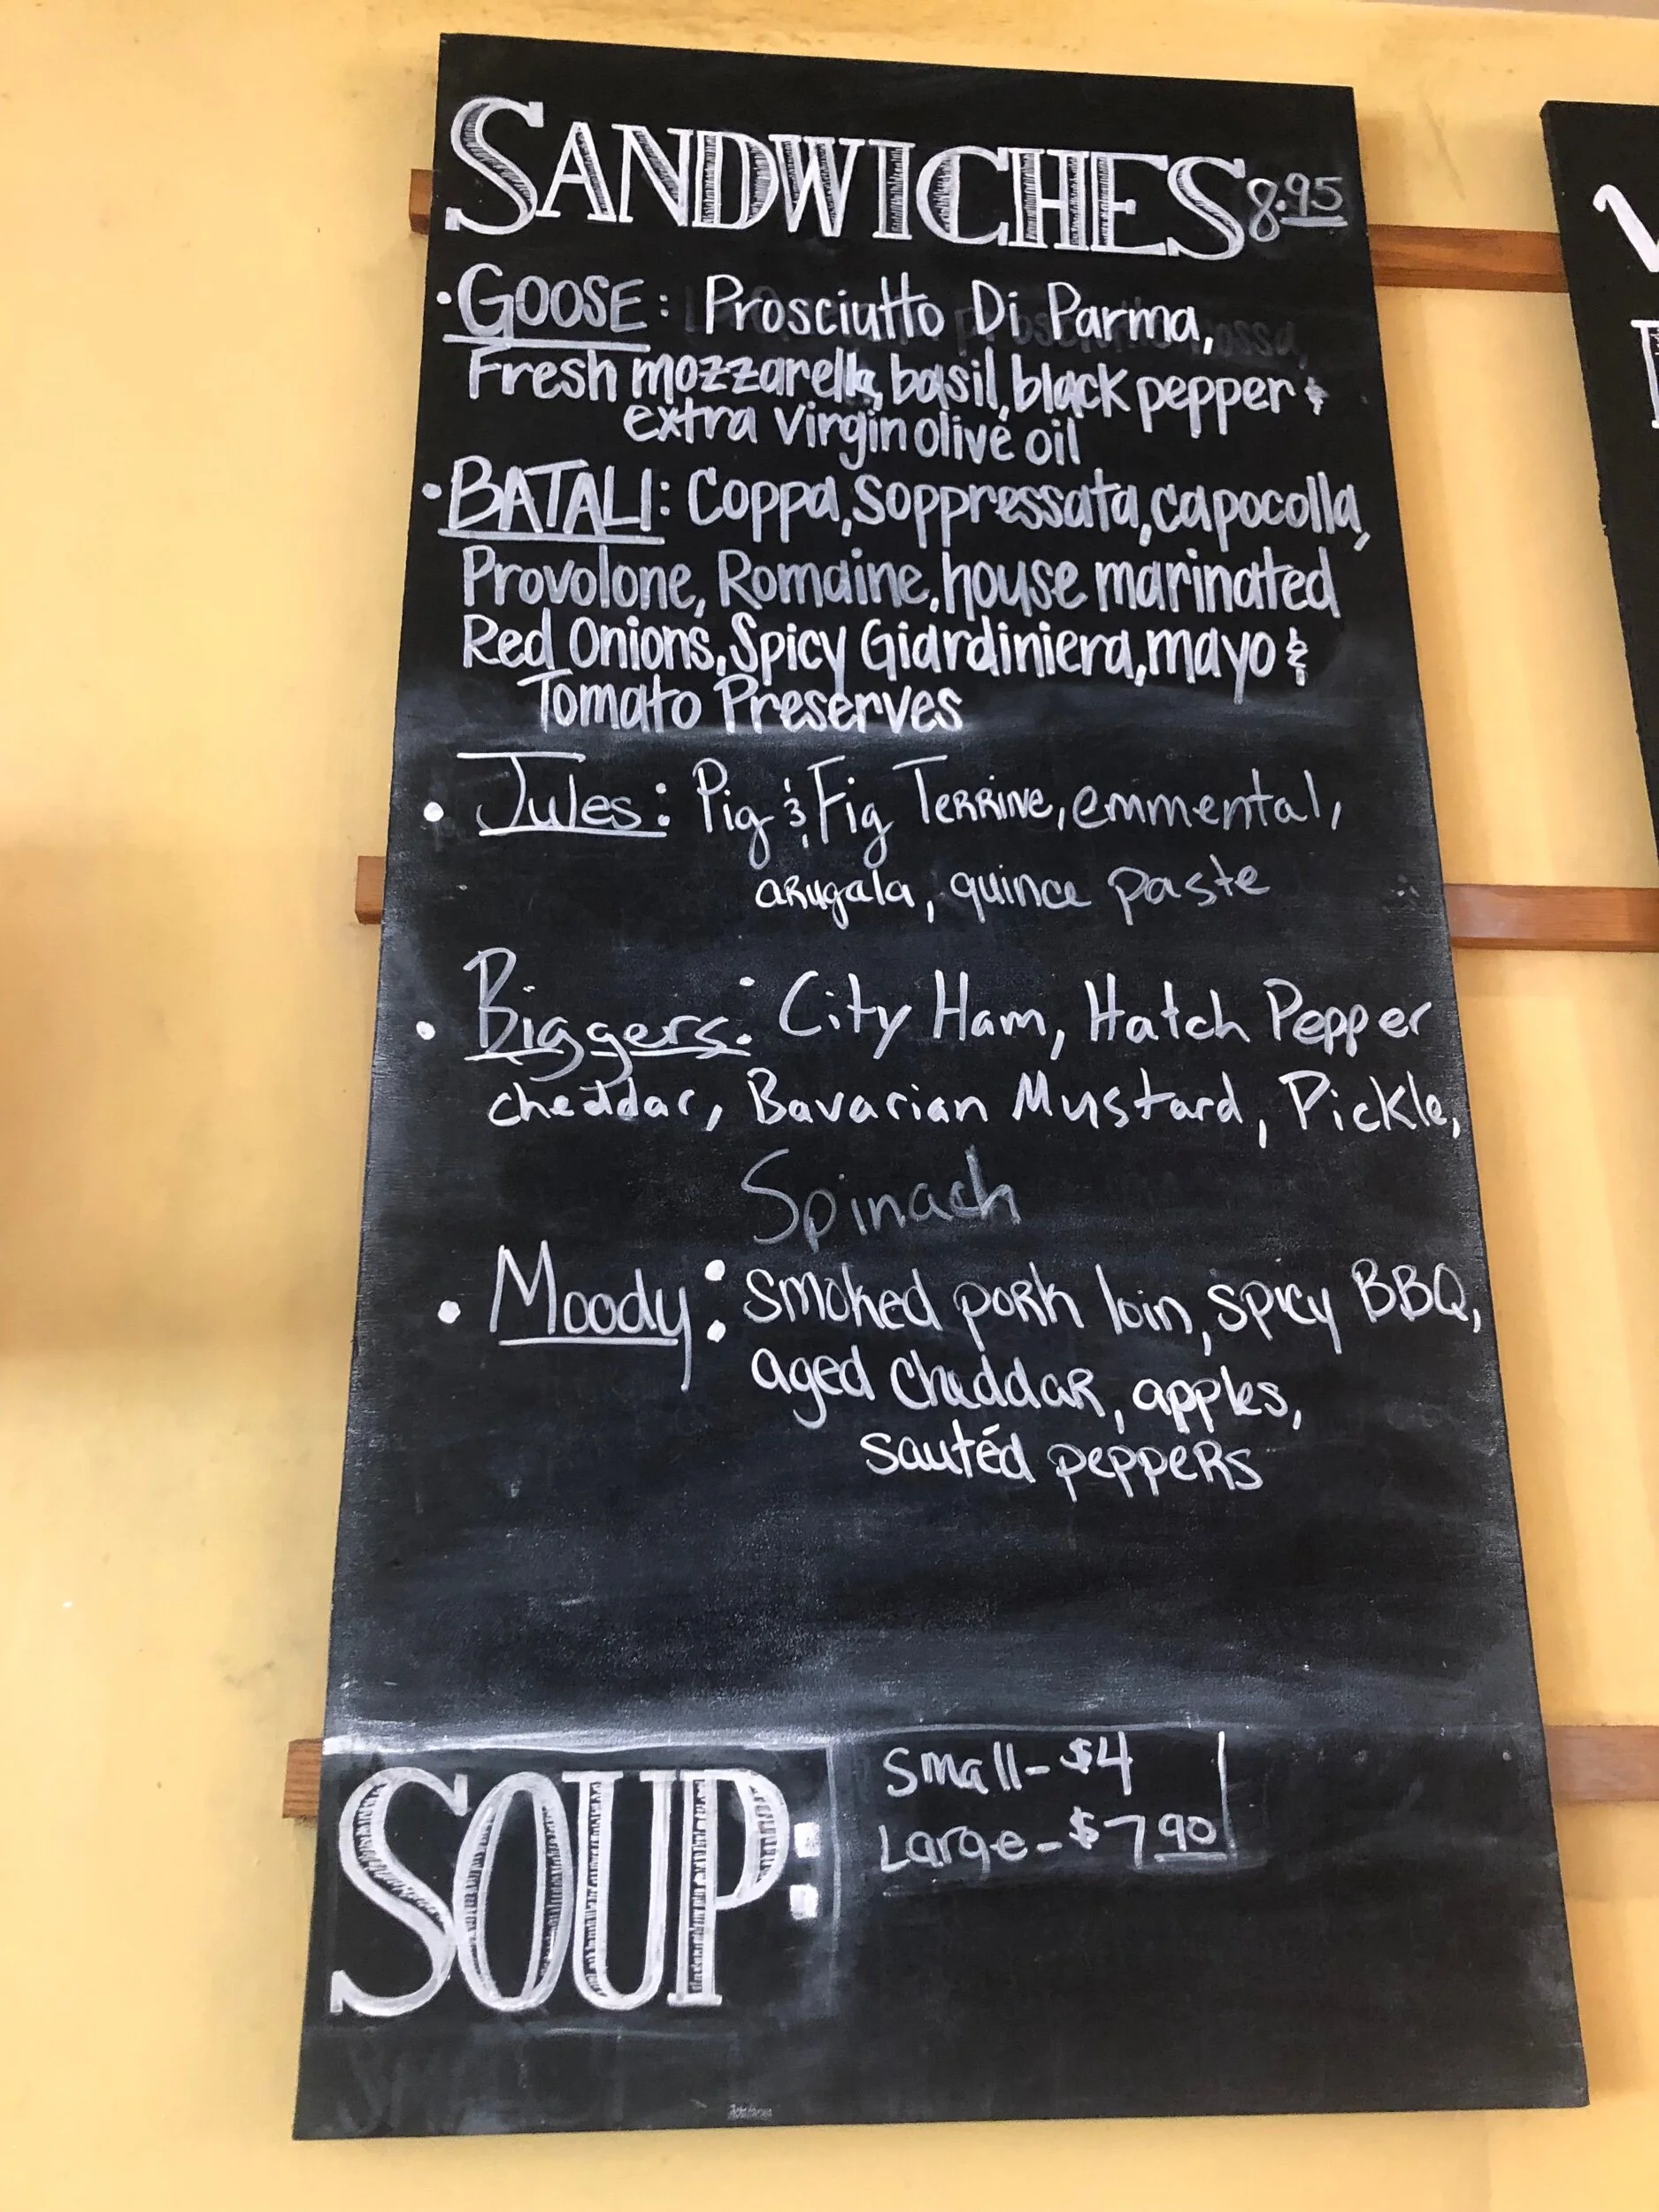 SANDWICHES 8.95
• GOOSE: Prosciutto Di Parma,
Fresh mozzarella, basil, black pepper &
extra virgin olive oil
• BATALI: Coppa, Soppressata, capocolla,
Provolone, Romaine, house marinated
Red Onions, Spicy Giardiniera, mayo &
Tomato Preserves
• Jules: Pig & Fig Terrine, emmental,
arugala, quince paste
• Biggers: City Ham, Hatch Pepper
cheddar, Bavarian Mustard, Pickle,
Spinach
• Moody: Smoked pork loin, spicy BBQ,
aged cheddar, apples,
sautéd peppers
SOUP:
Small - $4
Large - $7.90